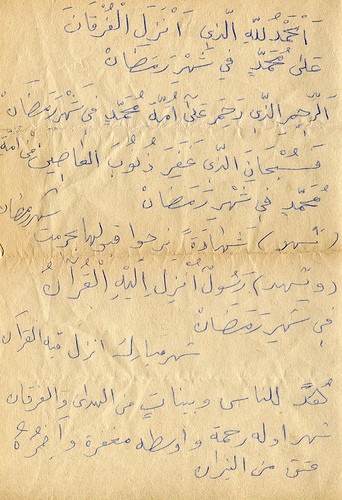 اَلْحَمْدُ لِلّٰهِ الَّذِي اَنْزَلَ الْفُرْقَانَ
عَلىٰ مُحَمَّدٍ فِي شَهْرِ رَمَضَانْ
اَلرَّحِيمِ الَّذِي رَحِمَ عَلىٰ اُمَّةِ مُحَمَّدٍ فِي شَهْرِ رَمَضَانْ
فَسُبْحَانَ الَّذِي غَفَرَ ذُنُوبَ العَاصِينَ مِنْ اُمَّة
مُحَمَّدٍ فِي شَهْرِ رَمَضَانْ
(نشهد) شَهَادَةً نرجوا قبولها بحرمت شهر رمضان
(ونشهد) رَسُولٌ اُنْزِلَ اِلَيْهِ الْقُرْآنُ
فِي شَهْرِ رَمَضَانْ
شهر مبارك انزل فيه القرآن
هُدًى للناس وبيناتٍ من الهدى والفرقان
شهر اوله رحمة واوسطه مغفرة وآخِرُهُ
عتق من النيران